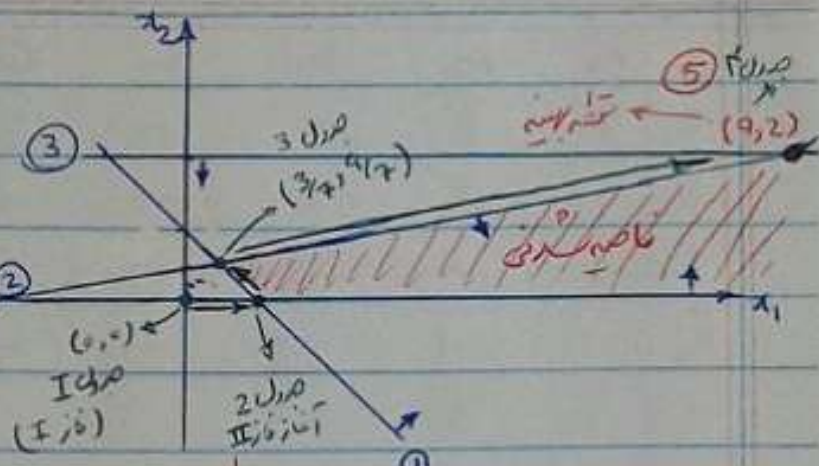 x₂
⑤ جدول ۴
③
جدول 3
نقطه بهینه
(9,2)
(3/7, 4/7)
ناحیه شدنی
②
x₁
(0,0)
جدول I
(فاز I)
جدول 2
آغاز فاز II
①